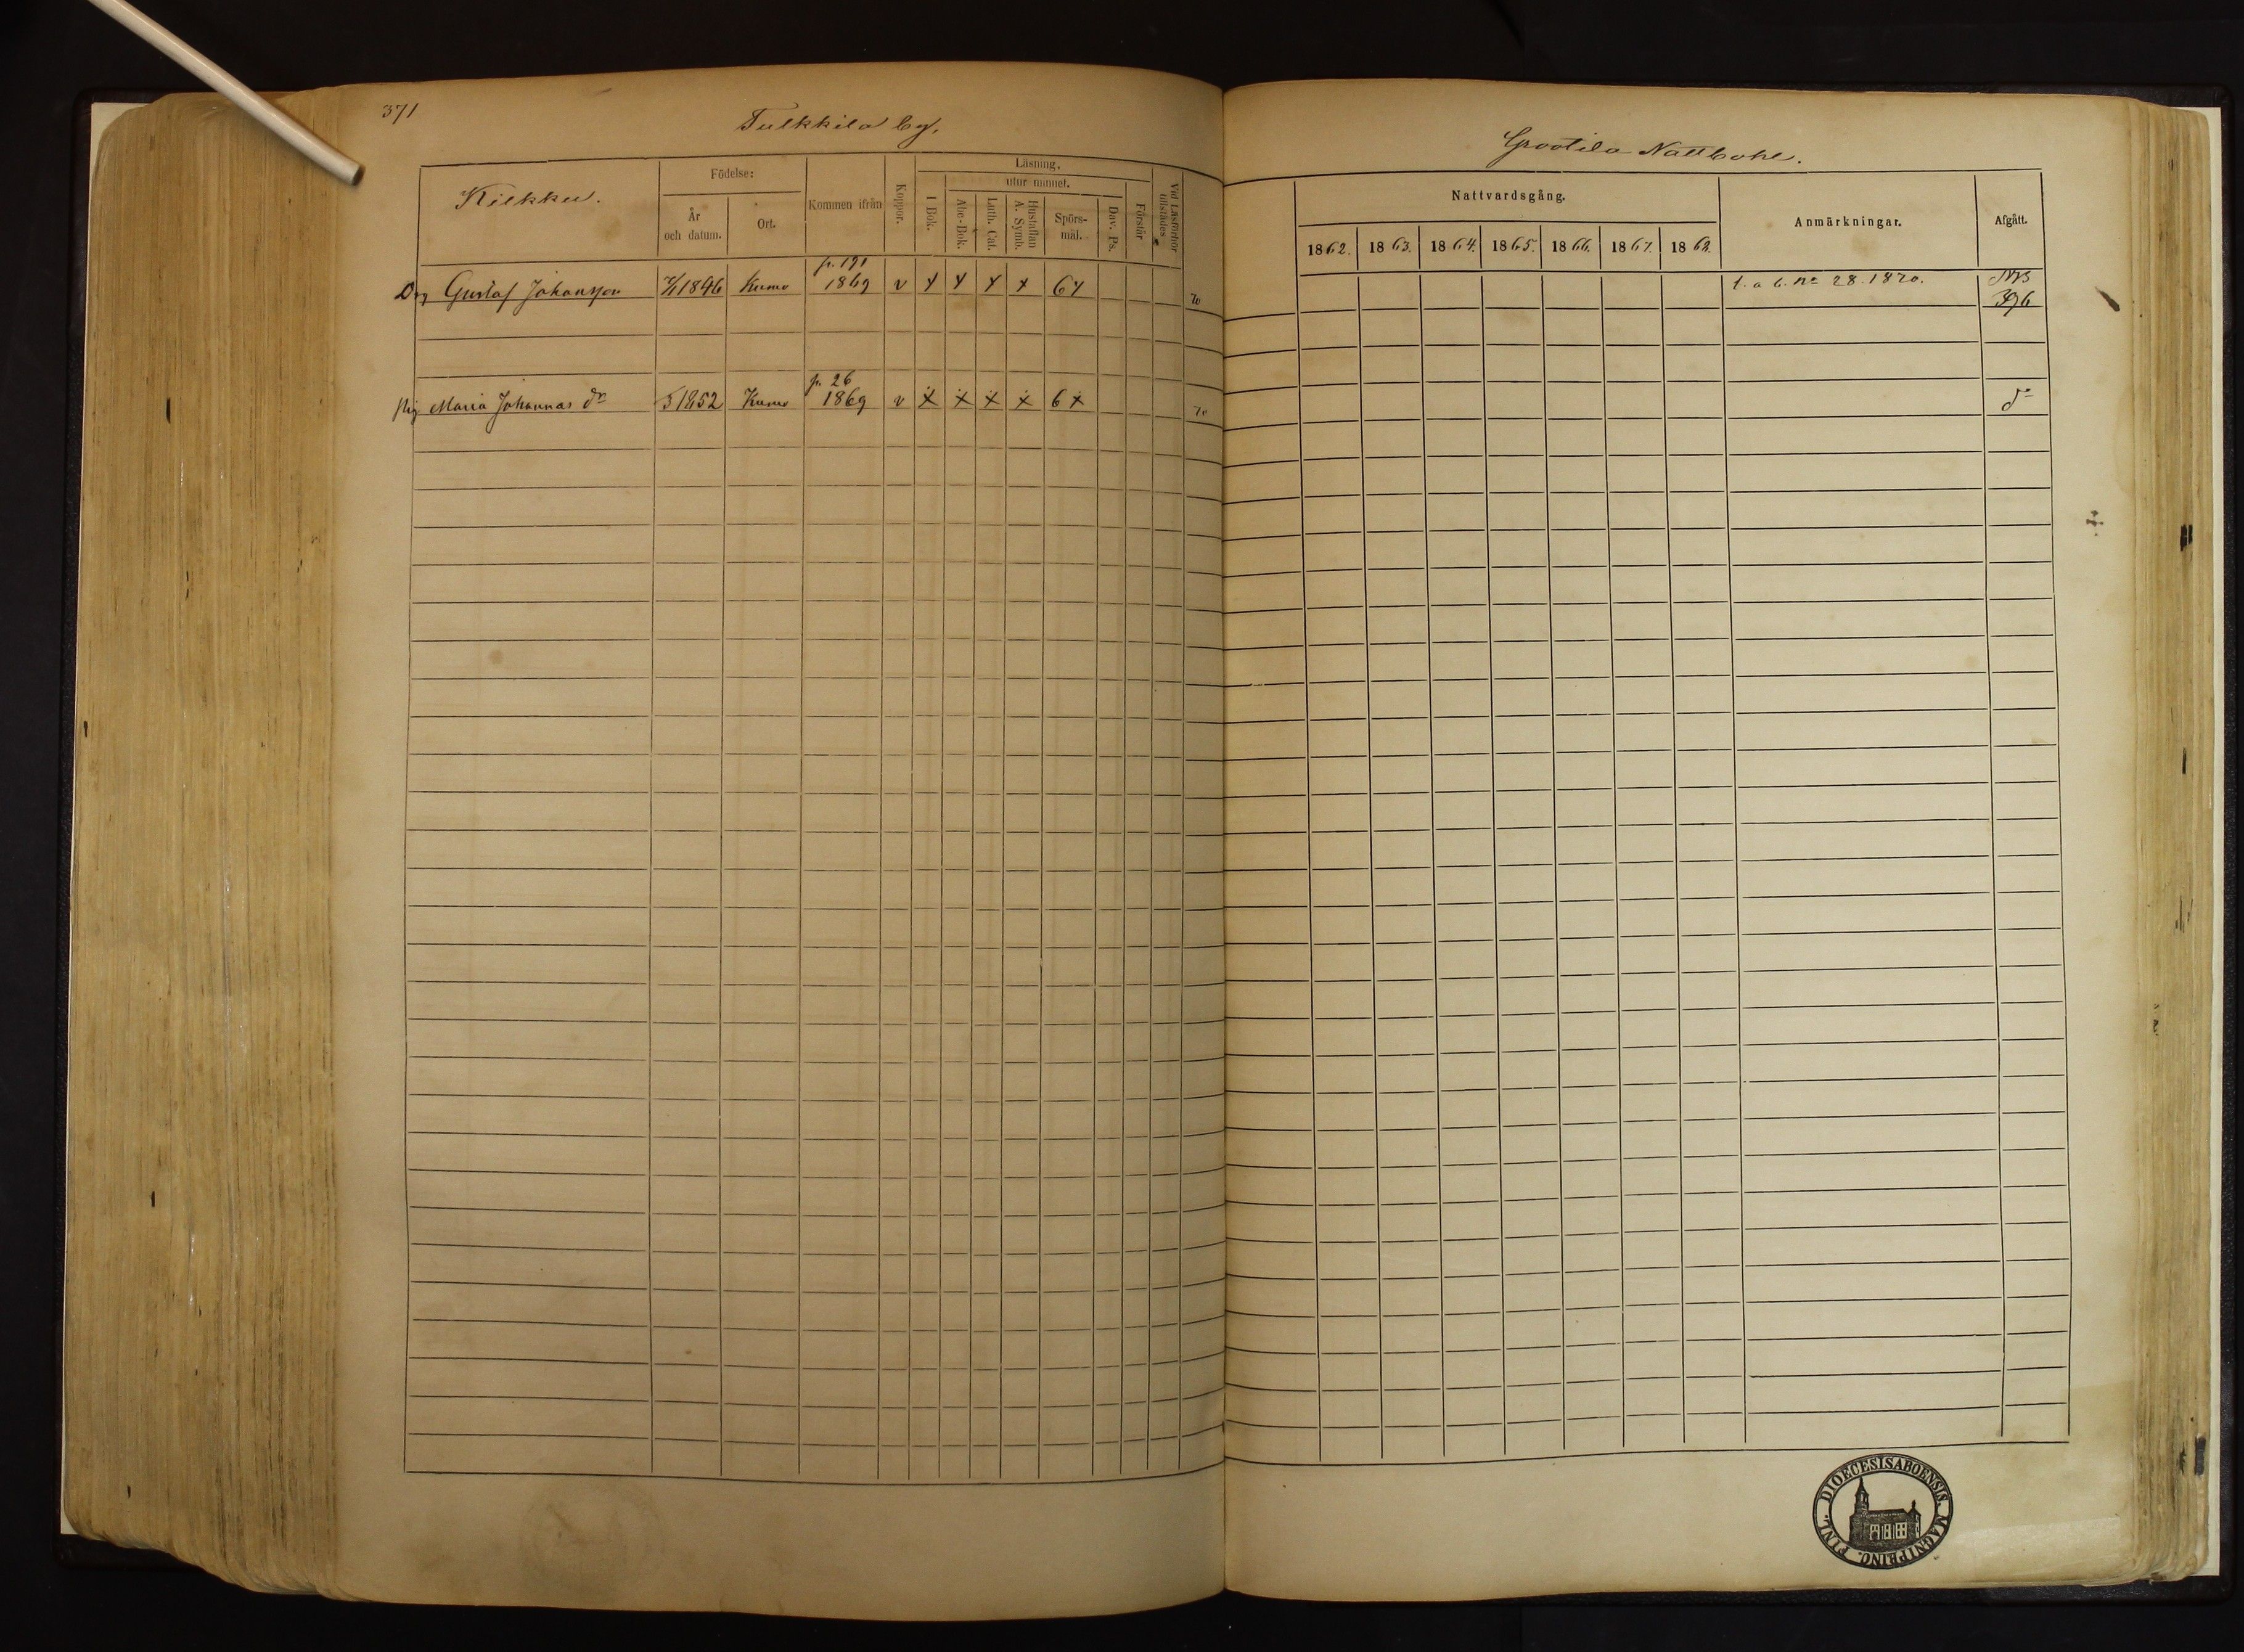 371
Tulkkila by.
Grootila Nattbohl.
Kiukku.
Födelse:
År och datum.
Ort.
Kommen ifrån
Koppor.
Läsning.
utur minnet.
I Bok.
Abc-Bok.
Luth. Cat.
Hustaflan A. Symb.
Spörs-mål.
Dav. Ps.
Förstår
Vid Läsförhör tillstädes
Nattvardsgång.
1862. 1863. 1864. 1865. 1866. 1867. 1868.
Anmärkningar.
Afgått.
p. 191
Drg Gustaf Johansson 1846 Kumo 1869 v x x x x 6x 70 28. 1870.
396
p. 26
Pig Maria Johannas dr 1852 Kumo 1869 v x x x x 6x 70 do
DIOECESIS ABOENSIS. MAGNI PRINC. FINL.